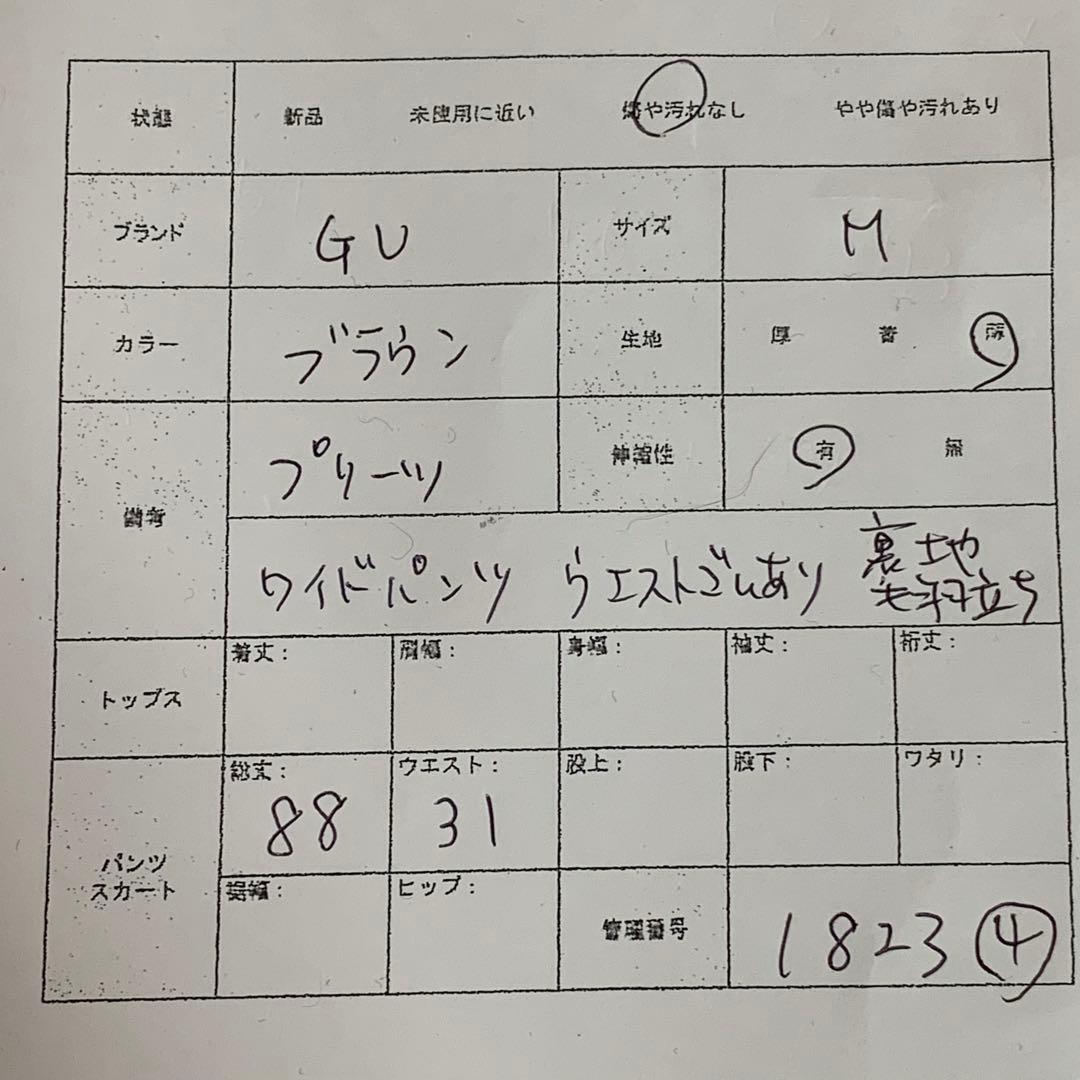 状態 新品 未使用に近い 傷や汚れなし やや傷や汚れあり
ブランド GU サイズ M
カラー ブラウン 生地 厚 普 薄
備考 プリーツ 伸縮性 有 無
ワイドパンツ ウエストゴムあり 裏地
毛羽立ち
トップス 着丈： 肩幅： 身幅： 袖丈： 裄丈：
パンツ
スカート
総丈： ウエスト： 股上： 股下： ワタリ：
88 31
裾幅： ヒップ： 管理番号 1823 ④